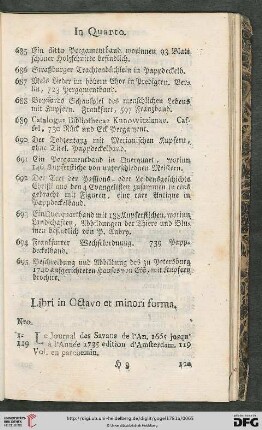 In Quarto.
685 Ein ditto Pergamentband worinnen 93 Matt-
schauer Holzschnitte befindlich.
686 Straßburger Trachtenbüchlein in Pappdeckelb.
687 Lieder im höhern Chor in Predigern.
723 Pergamentband.
688 Schauspiel des menschlichen Lebens
mit Kupfern. Frankfurt, 597 Franzband.
689 Catalogus Bibliothecae Cas-
sel, 730 Rück und Eck Pergament.
690 Der Todtentanz mit Merianischen Kupfern,
ohne Titel. Pappdeckelband.
691 Ein Pergamentband in Querquart, worinn
Kupferstiche von unterschiedenen Meistern.
692 Der Text der Passions- oder Leidensgeschichte
Christi aus den 4 Evangelisten zusammen in eins
gebracht mit Figuren, eine rare Antique in
Pappdeckelband.
693 Ein Querquartband mit 138 Kupferstichen, worinn
Landschaften, Abbildungen der Thiere und Blu-
men befindlich von P. Aubry.
694 Frankfurter Wechselordnung. 739 Papp-
deckelband.
695 Beschreibung und Abbildung des zu Petersburg
1740 aufgerichteten Hauses von Eis, mit Kupfern
brochirt.
Libri in Octavo et minori forma.
Nro.
1-
119 Le Journal des Savans de l'An. 1665 jusqu'
à l'Année 1735 edition d'Amsterdam. 119
Vol. en parchemin.
120
http://digi.ub.uni-heidelberg.de/diglit/vogel1781a/0065
© Universitätsbibliothek Heidelberg
gefördert durch die
DFG